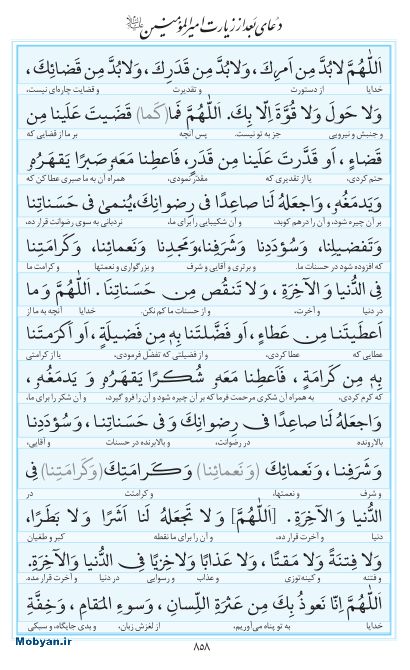 دعای بعد از زیارت امیرالمؤمنین علیه‌السلام
اَللّٰهُمَّ لَابُدَّ مِن اَمرِكَ، وَلَابُدَّ مِن قَدَرِكَ، وَلَابُدَّ مِن قَضائِكَ،
خدایا از دستورت و تقدیرت و قضایت چاره‌ای نیست،
وَلا حَولَ وَلا قُوَّةَ اِلّا بِكَ. اَللّٰهُمَّ فَما(كَما) قَضَيتَ عَلَينا مِن
و جنبش و نیرویی جز به تو نیست. پس آنچه بر ما از قضایی که
قَضاءٍ، اَو قَدَّرتَ عَلَينا مِن قَدَرٍ، فَاَعطِنا مَعَهُ صَبرًا يَقهَرُهُ
حتم کردی، یا از تقدیری که مقدّر نمودی، همراه آن به ما صبری عطا کن که
وَيَدمَغُهُ، وَاجعَلهُ لَنا صاعِدًا فى رِضوانِكَ، يُنمىٰ فى حَسَناتِنا
بر آن چیره شود، و آن را درهم کوبد، و آن شکیبایی را برای ما، نردبانی به سوی رضوانت قرار ده،
وَتَفضيلِنا، وَسُؤدَدِنا وَشَرَفِنا، وَمَجدِنا وَنَعمائِنا، وَكَرامَتِنا
که افزوده شود در حسنات ما، و برتری و آقایی و شرف و بزرگواری و نعمتها و کرامت ما
فِى الدُّنيا وَالآخِرَةِ، وَلا تَنقُص مِن حَسَناتِنا. اَللّٰهُمَّ وَما
در دنیا و آخرت، و از حسنات ما کم نکن. خدایا آنچه به ما از
اَعطَيتَنا مِن عَطاءٍ، اَو فَضَّلتَنا بِهِ مِن فَضيلَةٍ، اَو اَكرَمتَنا
عطایی که عطا کردی، و از فضیلتی که تفضّل فرمودی، یا از کرامتی
بِهِ مِن كَرامَةٍ، فَاَعطِنا مَعَهُ شُكرًا يَقهَرُهُ وَ يَدمَغُهُ،
که کرم کردی، به همراه آن شکری مرحمت فرما که بر آن چیره شود و آن را فرو گیرد، و آن شکر را برای ما،
وَاجعَلهُ لَنا صاعِدًا فى رِضوانِكَ وَفى حَسَناتِنا، وَسُؤدَدِنا
بالارونده در رضوانت، و بالابرنده در حسنات و آقایی،
وَشَرَفِنا، وَنَعمائِكَ (وَنَعمائِنا) وَكَرامَتِكَ(وَكَرامَتِنا) فِى
و شرف و نعمتها، و کرامتت در
الدُّنيا وَالآخِرَةِ. [اَللّٰهُمَّ] وَلا تَجعَلهُ لَنا اَشَرًا وَلا بَطَرًا،
دنیا و آخرت قرار ده، و آن را برای ما نقطه کبر و طغیان
وَلا فِتنَةً وَلا مَقتًا، وَلا عَذابًا وَلاخِزيًا فِى الدُّنيا وَالآخِرَةِ.
و فتنه و کینه‌توزی و عذاب و رسوایی در دنیا و آخرت قرار مده.
اَللّٰهُمَّ اِنّا نَعوذُ بِكَ مِن عَثرَةِ اللِّسانِ، وَسوءِ المَقامِ، وَخِفَّةِ
خدایا به تو پناه می‌آوریم، از لغزش زبان، و بدی جایگاه، و سبکی
Mobyan.ir
۸۵۸